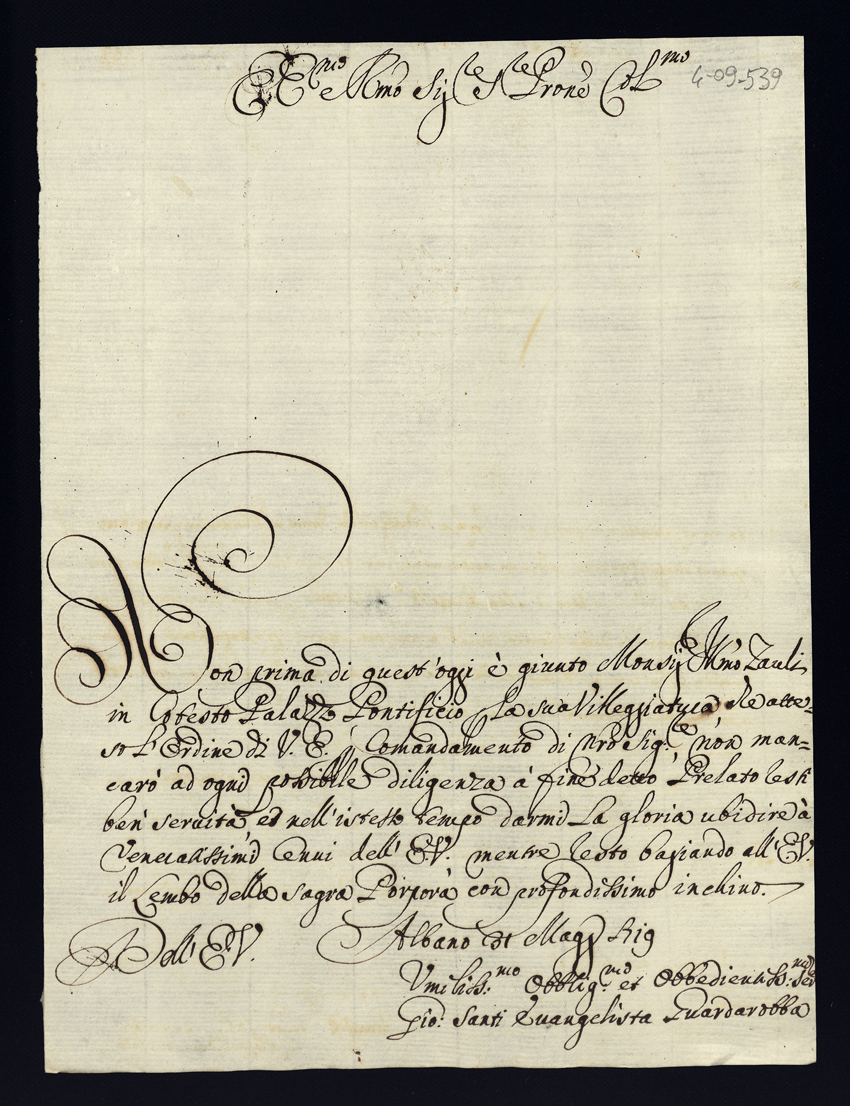 E.mo e Rmo Sig.re Sre Prone Col.mo
4-09-539
Non prima di quest'oggi è giunto Monsig.e Illmo Zauli
in Cotesto Palazzo Pontificio p la sua Villeggiatura, ed atte-
so l'Ordine di V. E. p Comandamento di Nrõ Sig.re non man=
carò ad ogni possibile diligenza à fine detto Prelato resti
ben servitò, ed nell'istesso tempo darmi La gloria ubidire à
Veneratissimi Cenni dell' E.V. mentre resto baciando all' E.V.
il Lembo della Sagra Porpora con profondissimo inchino.
Dell' E.V.
Albano 31 Magg
Umiliss.mo Obblig.mo et Obbedientiss.mo Ser
Gio: Santi Evangelista Guardarobba